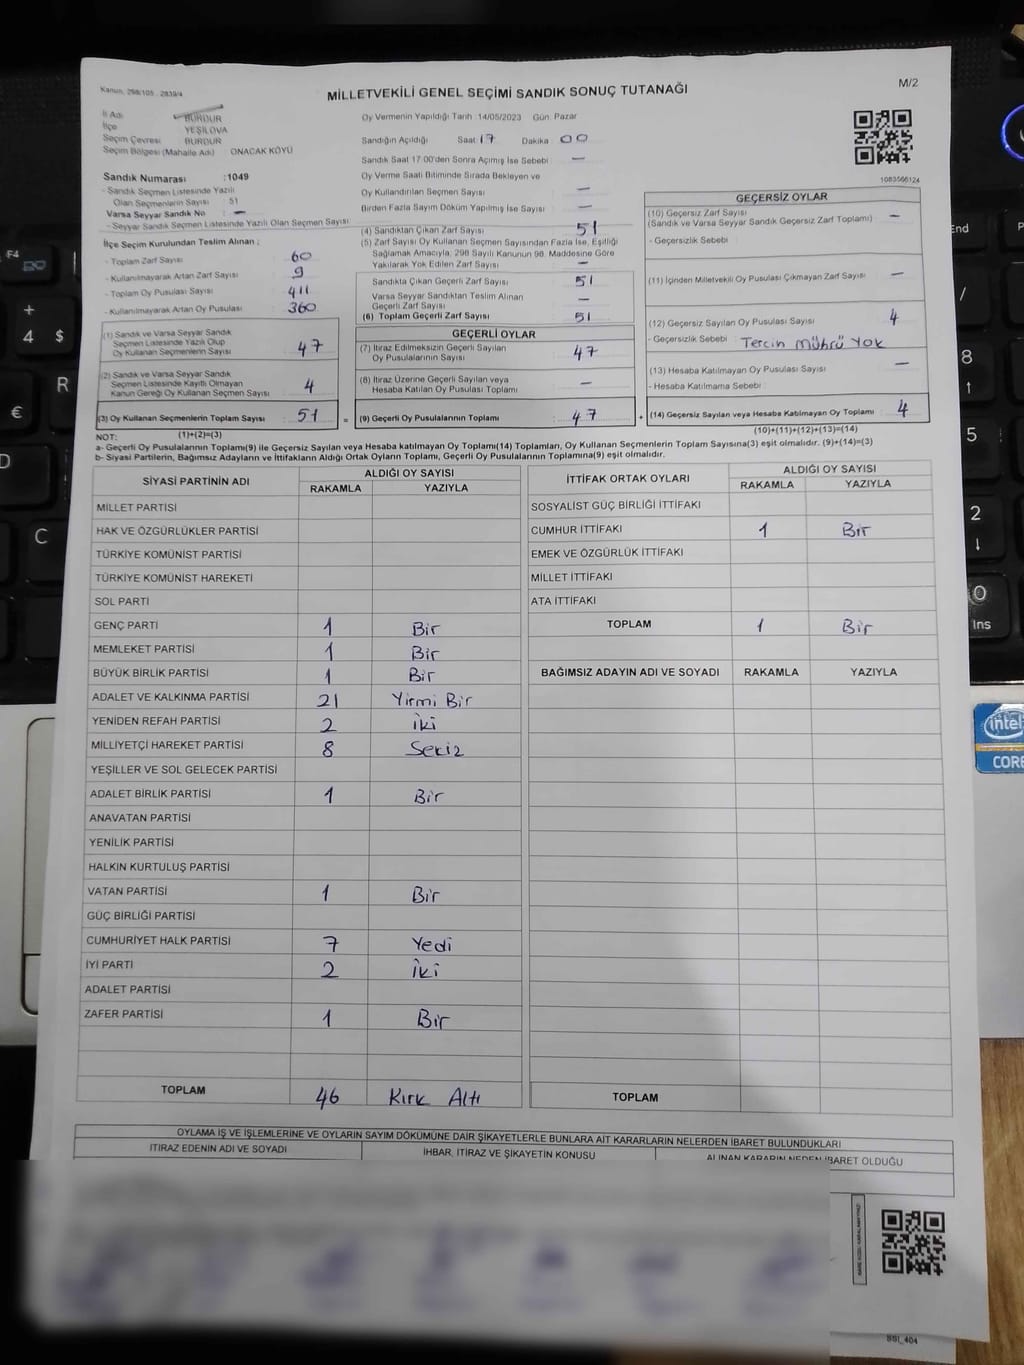 Kanun, 298/105 , 2839/4
MİLLETVEKİLİ GENEL SEÇİMİ SANDIK SONUÇ TUTANAĞI
M/2
İl Adı BURDUR
İlçe YEŞİLOVA
Seçim Çevresi BURDUR
Seçim Bölgesi (Mahalle Adı) ONACAK KÖYÜ
Sandık Numarası :1049
- Sandık Seçmen Listesinde Yazılı
Olan Seçmenlerin Sayısı : 51
Varsa Seyyar Sandık No –
- Seyyar Sandık Seçmen Listesinde Yazılı Olan Seçmen Sayısı
İlçe Seçim Kurulundan Teslim Alınan ;
- Toplam Zarf Sayısı : 60
- Kullanılmayarak Artan Zarf Sayısı : 9
- Toplam Oy Pusulası Sayısı : 411
- Kullanılmayarak Artan Oy Pusulası : 360
(1) Sandık ve Varsa Seyyar Sandık
Seçmen Listesinde Yazılı Olup
Oy Kullanan Seçmenlerin Sayısı : 47
(2) Sandık ve Varsa Seyyar Sandık
Seçmen Listesinde Kayıtlı Olmayan
Kanun Gereği Oy Kullanan Seçmen Sayısı : 4
(3) Oy Kullanan Seçmenlerin Toplam Sayısı : 51 =
(1)+(2)=(3)
Oy Vermenin Yapıldığı Tarih :14/05/2023 Gün Pazar
Sandığın Açıldığı Saat :17 Dakika : 00
Sandık Saat 17:00'den Sonra Açımış İse Sebebi : –
Oy Verme Saati Bitiminde Sırada Bekleyen ve
Oy Kullandırılan Seçmen Sayısı : –
Birden Fazla Sayım Döküm Yapılmış İse Sayısı : –
(4) Sandıktan Çıkan Zarf Sayısı : 51
(5) Zarf Sayısı Oy Kullanan Seçmen Sayısından Fazla İse, Eşitliği
Sağlamak Amacıyla, 298 Sayılı Kanunun 98. Maddesine Göre
Yakılarak Yok Edilen Zarf Sayısı : –
Sandıkta Çıkan Geçerli Zarf Sayısı : 51
Varsa Seyyar Sandıktan Teslim Alınan
Geçerli Zarf Sayısı : –
(6) Toplam Geçerli Zarf Sayısı : 51
GEÇERLİ OYLAR
(7) İtiraz Edilmeksizin Geçerli Sayılan
Oy Pusulalarının Sayısı : 47
(8) İtiraz Üzerine Geçerli Sayılan veya
Hesaba Katılan Oy Pusulası Toplamı : –
(9) Geçerli Oy Pusulalarının Toplamı : 47 +
1083566124
GEÇERSİZ OYLAR
(10) Geçersiz Zarf Sayısı
(Sandık ve Varsa Seyyar Sandık Geçersiz Zarf Toplamı) : –
- Geçersizlik Sebebi :
(11) İçinden Milletvekili Oy Pusulası Çıkmayan Zarf Sayısı : –
(12) Geçersiz Sayılan Oy Pusulası Sayısı : 4
- Geçersizlik Sebebi : Tercin Mührü Yok
(13) Hesaba Katılmayan Oy Pusulası Sayısı : –
- Hesaba Katılmama Sebebi :
(14) Geçersiz Sayılan veya Hesaba Katılmayan Oy Toplamı : 4
(10)+(11)+(12)+(13)=(14)
NOT:
a- Geçerli Oy Pusulalarının Toplamı(9) ile Geçersiz Sayılan veya Hesaba katılmayan Oy Toplamı(14) Toplamları, Oy Kullanan Seçmenlerin Toplam Sayısına(3) eşit olmalıdır. (9)+(14)=(3)
b- Siyasi Partilerin, Bağımsız Adayların ve İttifakların Aldığı Ortak Oyların Toplamı, Geçerli Oy Pusulalarının Toplamına(9) eşit olmalıdır.
SİYASİ PARTİNİN ADI ALDIĞI OY SAYISI
RAKAMLA YAZIYLA
MİLLET PARTİSİ
HAK VE ÖZGÜRLÜKLER PARTİSİ
TÜRKİYE KOMÜNİST PARTİSİ
TÜRKİYE KOMÜNİST HAREKETİ
SOL PARTİ
GENÇ PARTİ 1 Bir
MEMLEKET PARTİSİ 1 Bir
BÜYÜK BİRLİK PARTİSİ 1 Bir
ADALET VE KALKINMA PARTİSİ 21 Yirmi Bir
YENİDEN REFAH PARTİSİ 2 iki
MİLLİYETÇİ HAREKET PARTİSİ 8 Sekiz
YEŞİLLER VE SOL GELECEK PARTİSİ
ADALET BİRLİK PARTİSİ 1 Bir
ANAVATAN PARTİSİ
YENİLİK PARTİSİ
HALKIN KURTULUŞ PARTİSİ
VATAN PARTİSİ 1 Bir
GÜÇ BİRLİĞİ PARTİSİ
CUMHURİYET HALK PARTİSİ 7 Yedi
İYİ PARTİ 2 iki
ADALET PARTİSİ
ZAFER PARTİSİ 1 Bir
TOPLAM 46 Kırk Altı
İTTİFAK ORTAK OYLARI ALDIĞI OY SAYISI
RAKAMLA YAZIYLA
SOSYALİST GÜÇ BİRLİĞİ İTTİFAKI
CUMHUR İTTİFAKI 1 Bir
EMEK VE ÖZGÜRLÜK İTTİFAKI
MİLLET İTTİFAKI
ATA İTTİFAKI
TOPLAM 1 Bir
BAĞIMSIZ ADAYIN ADI VE SOYADI RAKAMLA YAZIYLA
TOPLAM
OYLAMA İŞ VE İŞLEMLERİNE VE OYLARIN SAYIM DÖKÜMÜNE DAİR ŞİKAYETLERLE BUNLARA AİT KARARLARIN NELERDEN İBARET BULUNDUKLARI
İTİRAZ EDENİN ADI VE SOYADI
İHBAR, İTİRAZ VE ŞİKAYETİN KONUSU
ALINAN KARARIN NEDEN İBARET OLDUĞU
SSI_404
F4
+
4 $
R
€
D
C
End
/
8
↑
5
2
↓
0
Ins
intel
CORE